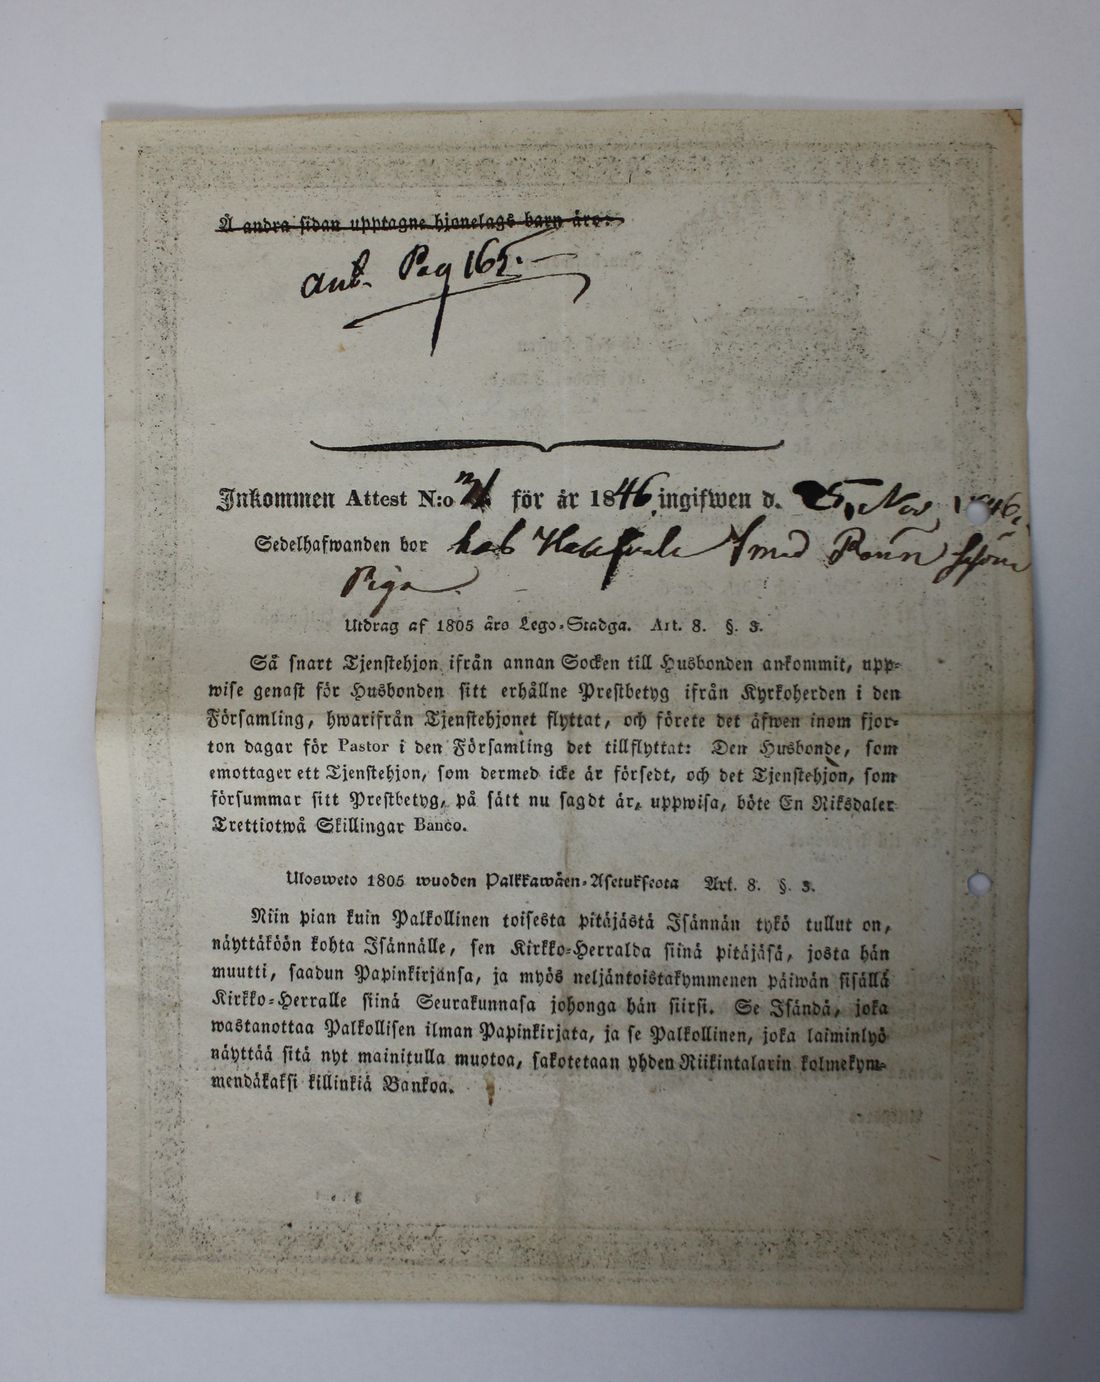 Å andra sidan upptagne hjonelags barn äro:
ant. Pag 165.
Inkommen Attest N:o för år 1846, ingifwen d. 5, Nov, 1846,
Sedelhafwanden bor hos
Piga
Utdrag af 1805 års Lego-Stadga. Art. 8. §. 3.
Så snart Tjenstehjon ifrån annan Socken till Husbonden ankommit, upp-
wise genast för Husbonden sitt erhållne Prestbetyg ifrån Kyrkoherden i den
Församling, hwarifrån Tjenstehjonet flyttat, och förete det äfwen inom fjor-
ton dagar för Pastor i den Församling det tillflyttat: Den Husbonde, som
emottager ett Tjenstehjon, som dermed icke är försedt, och det Tjenstehjon, som
försummar sitt Prestbetyg, på sätt nu sagdt är, uppwisa, böte En Riksdaler
Trettiotwå Skillingar Banco.
Ulosweto 1805 wuoden Palkkawäen-Asetuksesta Art. 8. §. 3.
Niin pian kuin Palkollinen toisesta pitäjästä Isännän tykö tullut on,
näyttäköön kohta Isännälle, sen Kirkko-Herralda siinä pitäjäsä, josta hän
muutti, saadun Papinkirjansa, ja myös neljäntoistakymmenen päiwän sisällä
Kirkko-Herralle siinä Seurakunnasa johonga hän siirsi. Se Isändä, joka
wastanottaa Palkollisen ilman Papinkirjata, ja se Palkollinen, joka laiminlyö
näyttää sitä nyt mainitulla muotoa, sakotetaan yhden Riikintalarin kolmekym-
mendäkaksi killinkiä Bankoa.